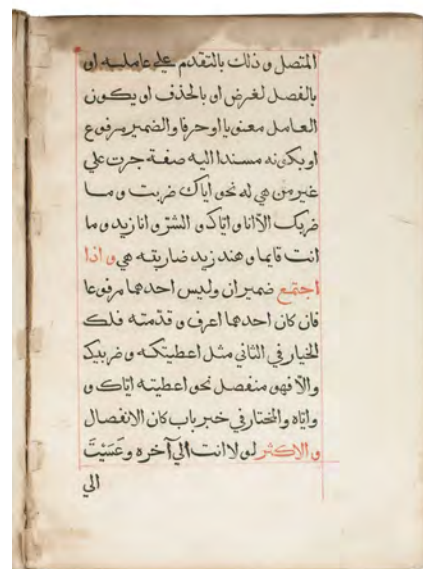 المتصل وذلك بالتقدم علي عامليه او
بالفصل لغرض او بالحذف او يكون
العامل معنويا او حرفا والضمير مرفوع
او بكونه مسندا اليه صفة جرت علي
غير من هي له نحو اياك ضربت وما
ضربك الا انا واياك والشر وانا زيد وما
انت قايما وهند زيد ضاربته هي واذا
اجتمع ضميران وليس احدهما مرفوعا
فان كان احدهما اعرف وقدمته فلك
الخيار في الثاني مثل اعطيتكه وضربيك
والا فهو منفصل نحو اعطيته اياك و
واياه والمختار في خبر باب كان الانفصال
والاكثر لولا انت الي آخره وعَسَيْتَ
الي